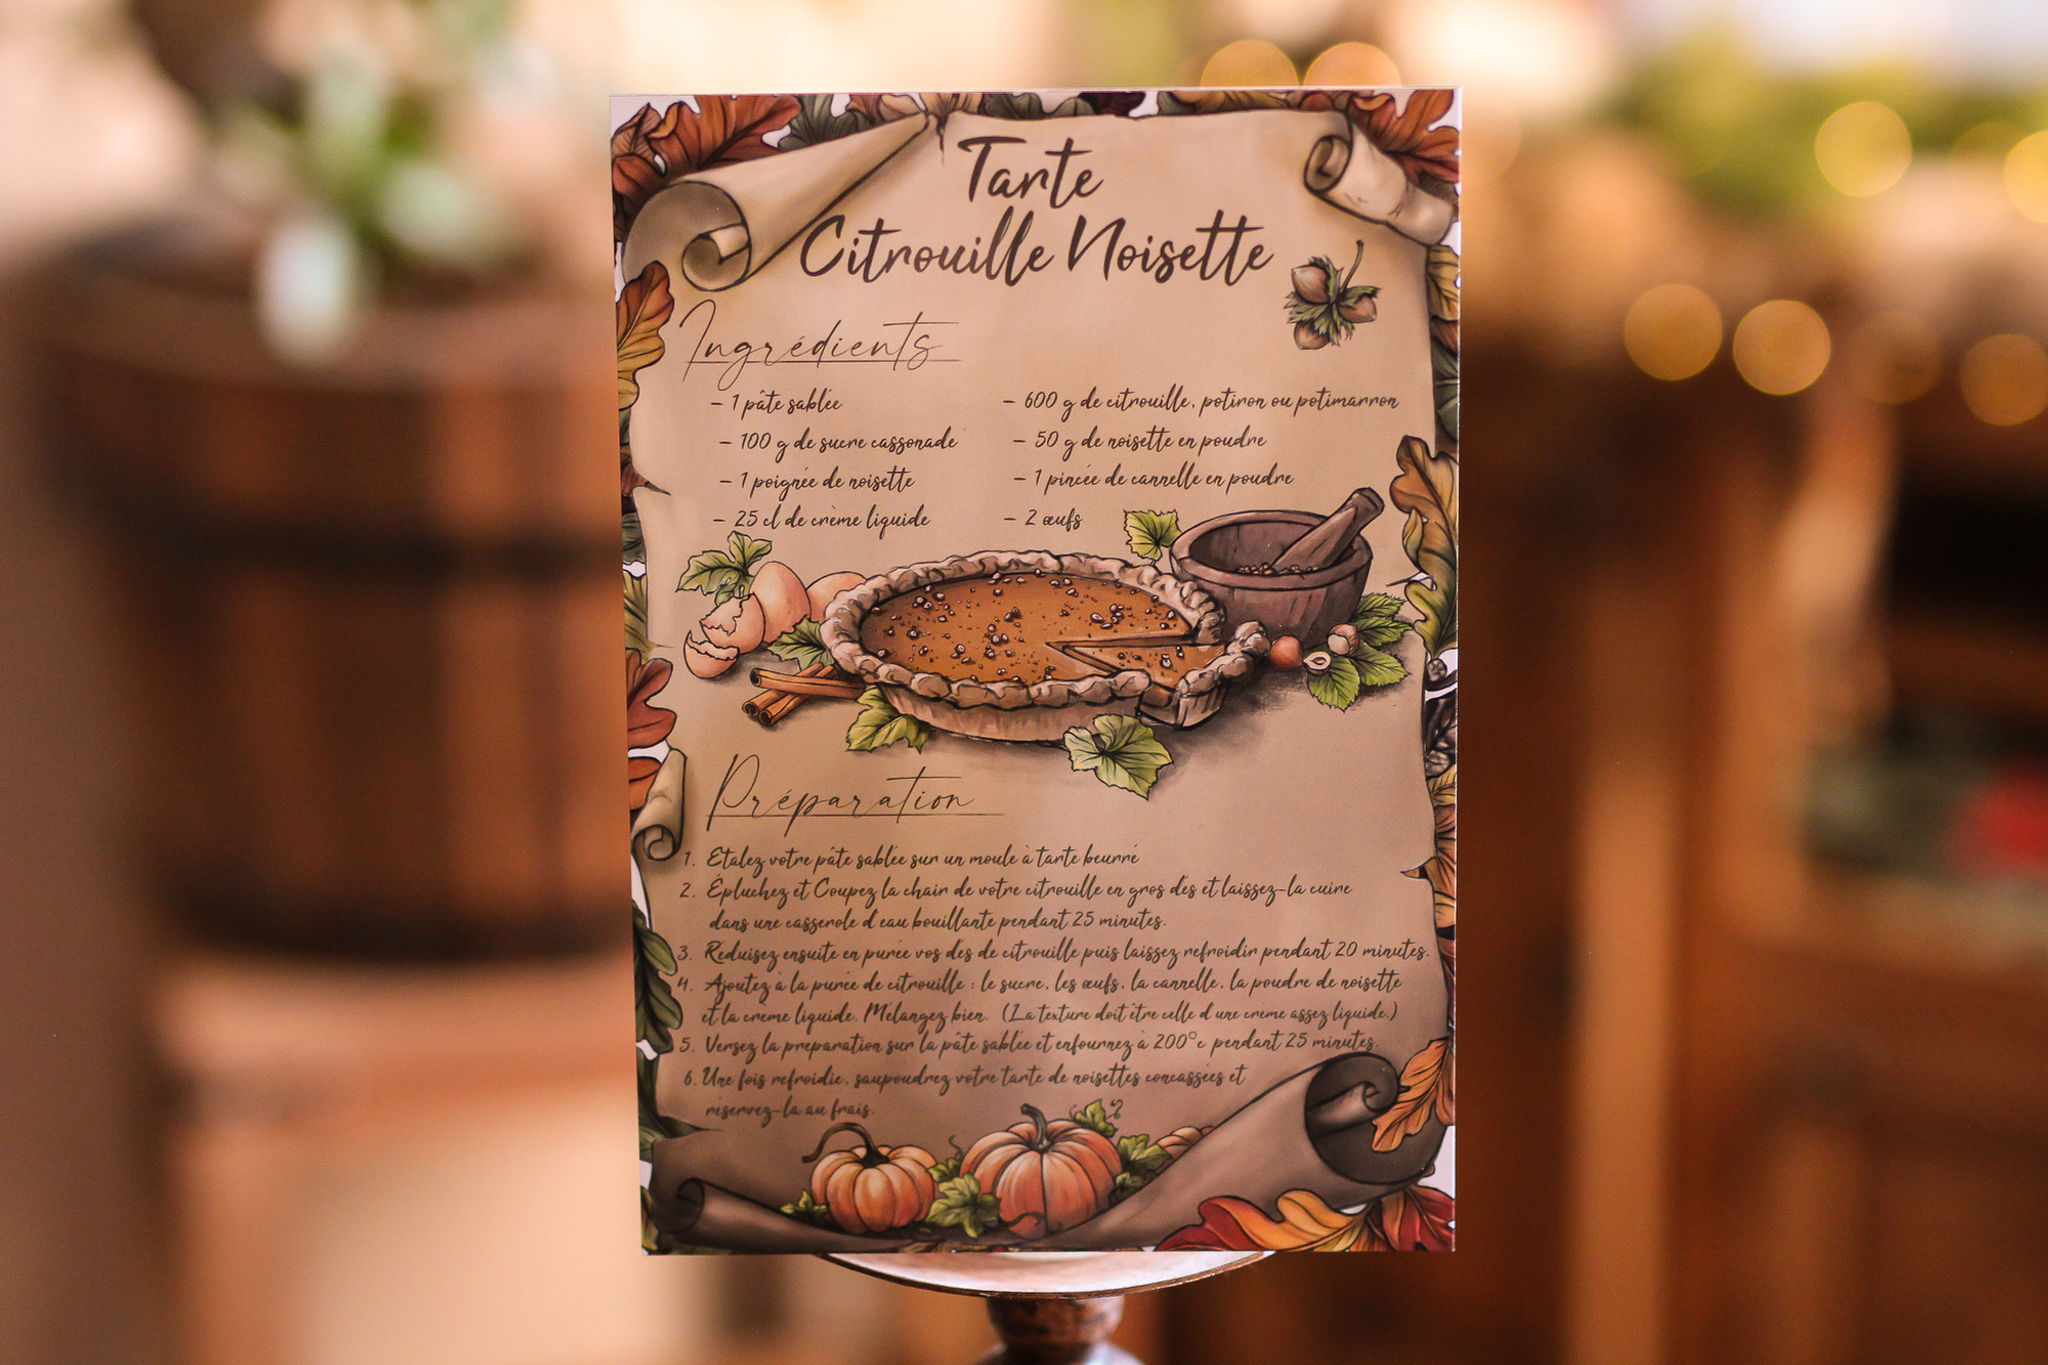 Tarte
Citrouille Noisette
Ingrédients
- 1 pâte sablée
- 100 g de sucre cassonade
- 1 poignée de noisette
- 25 cl de crème liquide
- 600 g de citrouille, potiron ou potimarron
- 50 g de noisette en poudre
- 1 pincée de cannelle en poudre
- 2 œufs
Préparation
1. Etalez votre pâte sablée sur un moule à tarte beurré
2. Épluchez et Coupez la chair de votre citrouille en gros dés et laissez-la cuire
dans une casserole d'eau bouillante pendant 25 minutes.
3. Réduisez ensuite en purée vos dés de citrouille puis laissez refroidir pendant 20 minutes.
4. Ajoutez à la purée de citrouille : le sucre, les œufs, la cannelle, la poudre de noisette
et la crème liquide. Mélangez bien. (La texture doit être celle d'une crème assez liquide.)
5. Versez la préparation sur la pâte sablée et enfournez à 200°c pendant 25 minutes.
6. Une fois refroidie, saupoudrez votre tarte de noisettes concassées et
réservez-la au frais.